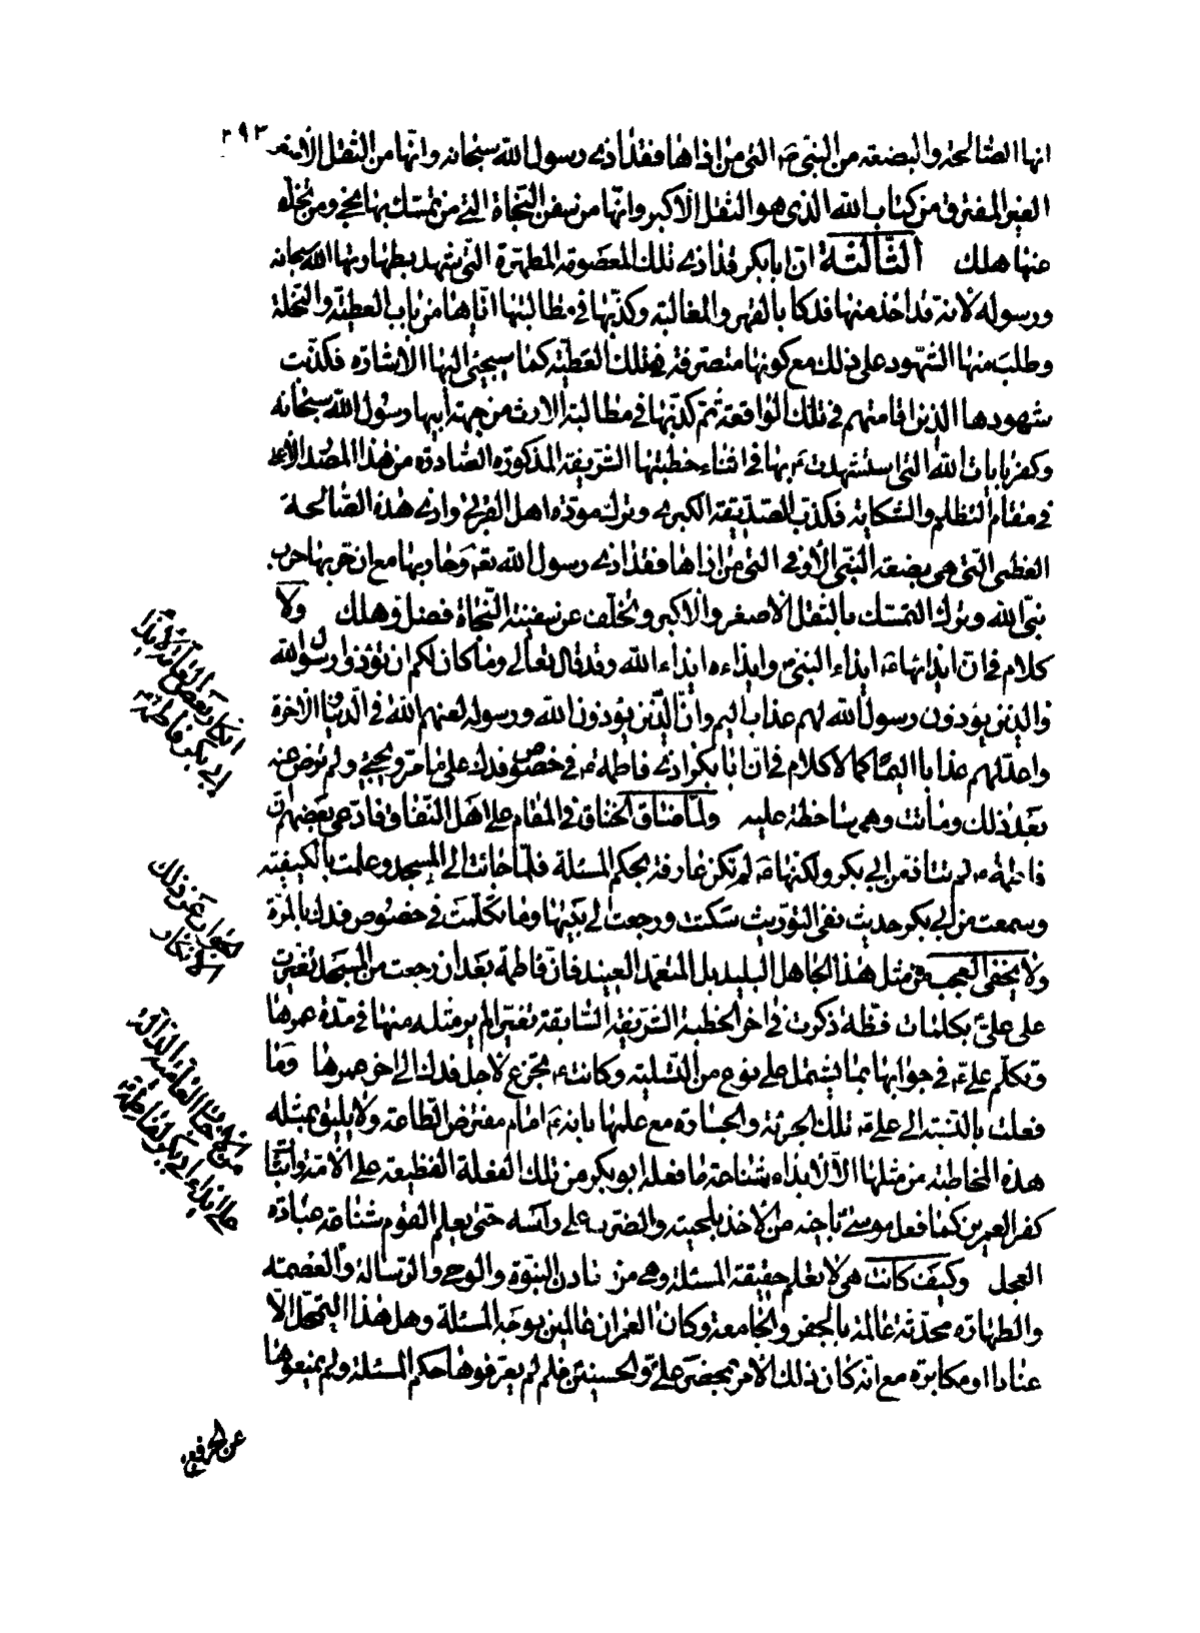 ٢٩٣
انها الصالحة والبضعة من النبى ص التى من اذاها فقد اذى رسول الله سبحانه وانها من الثقل الاصغر
الغير المفترق من كتاب الله الذى هو الثقل الاكبر وانها من سفن النجاة التى من تمسك بها نجى ومن تخلف
عنها هلك الثالثة ان ابابكر قد اذى تلك المعصومة المطهرة التى شهد بطهارتها الله سبحانه
ورسوله لانه قد اخذ منها فدكا بالقهر والمغالبة وكذبها فى مطالبتها اياها من باب العطية والنحلة
وطلب منها الشهود على ذلك مع كونها متصرفة فى تلك العطية كما سيجئ اليها الاشارة فكذبت
شهودها الذين اقامتهم فى تلك الواقعة ثم كذبها فى مطالبة الارث من جهة ابيها رسول الله سبحانه
وكفر بايات الله التى استشهدت ع بها فى اثناء خطبتها الشريفة المذكورة الصادرة من هذا المصدر الاعلى
فى مقام التظلم والشكاية فكذب الصديقة الكبرى وترك مودة اهل القربى واذى هذه الصالحة
العظمى التى هى بضعة النبى الاوفى التى من اذاها فقد اذى رسول الله نعم وحاربها مع ان حربها حرب
نبى الله وترك التمسك بالثقل الاصغر والاكبر وتخلف عن سفينة النجاة فضل وهلك ولا
كلام فى ان ايذائها ع ايذاء النبى ص وايذاءه ايذاء الله وقد قال تعالى وما كان لكم ان تؤذوا رسول الله
والذين يؤذون رسول الله لهم عذاب اليم وان الذين يؤذون الله ورسوله لعنهم الله فى الدنيا والاخرة
واعد لهم عذابا اليما كما لا كلام فى ان ابابكر اذى فاطمة ع فى خصوص فدك على ما مر ويجئ ولم ترض عنه
بعد ذلك وماتت وهى ساخطة عليه ولما ضاق الخناق فى المقام على اهل النفاق فادعى بعضهم ان
فاطمة ع لم تتاذ من ابى بكر ولكنها ع لم تكن عارفة بحكم المسئلة فلما جائت الى المسجد وعلمت بالكيفية
وسمعت من ابى بكر حديث نفى التوريث سكتت ورجعت الى بيتها وما تكلمت فى خصوص فدك بالمرة
ولا يخفى العجب من مثل هذا الجاهل البليد بل المتعمد العنيد فان فاطمة بعد ان رجعت من المسجد تغيرت
على على بكلمات فظة ذكرت فى اخر الخطبة الشريفة السابقة تغيرا لم ير مثله منها فى مدة عمرها
وتكلم على ع فى جوابها بما اشتمل على نوع من التسلية وكانت ع تجزع لاجل فدك الى اخر عمرها وما
فعلت بالنسبة الى على ع تلك الجرئة والجسارة مع علمها بانه ع امام مفترض الطاعة ولا يليق بمثله
هذه المخاطبة من مثلها الا لابداء شناعة ما فعله ابو بكر من تلك الفعلة الفظيعة على الامة واثبات
كفر العمرين كما فعل موسى باخيه من الاخذ بلحيته والضرب على راسه حتى يعلم القوم شناعة عبادة
العجل وكيف كانت هى لا تعلم حقيقة المسئلة وهى من نادى النبوة والوحى والرسالة والعصمة
والطهارة محدثة عالمة بالجفر والجامعة وكان العمران عالمين بوجه المسئلة وهل هذا التمحل الا
عنادا او مكابرة مع انه كان ذلك الامر بمحضر على والحسنين فلم لم يعرفوها حكم المسئلة ولم يمنعوها
انكار بعض العامة لايذاء
ابى بكر فاطمة
الجواب عن ذلك
الانكار
على ايذاء ابى بكر لفاطمة
عن الحرفى